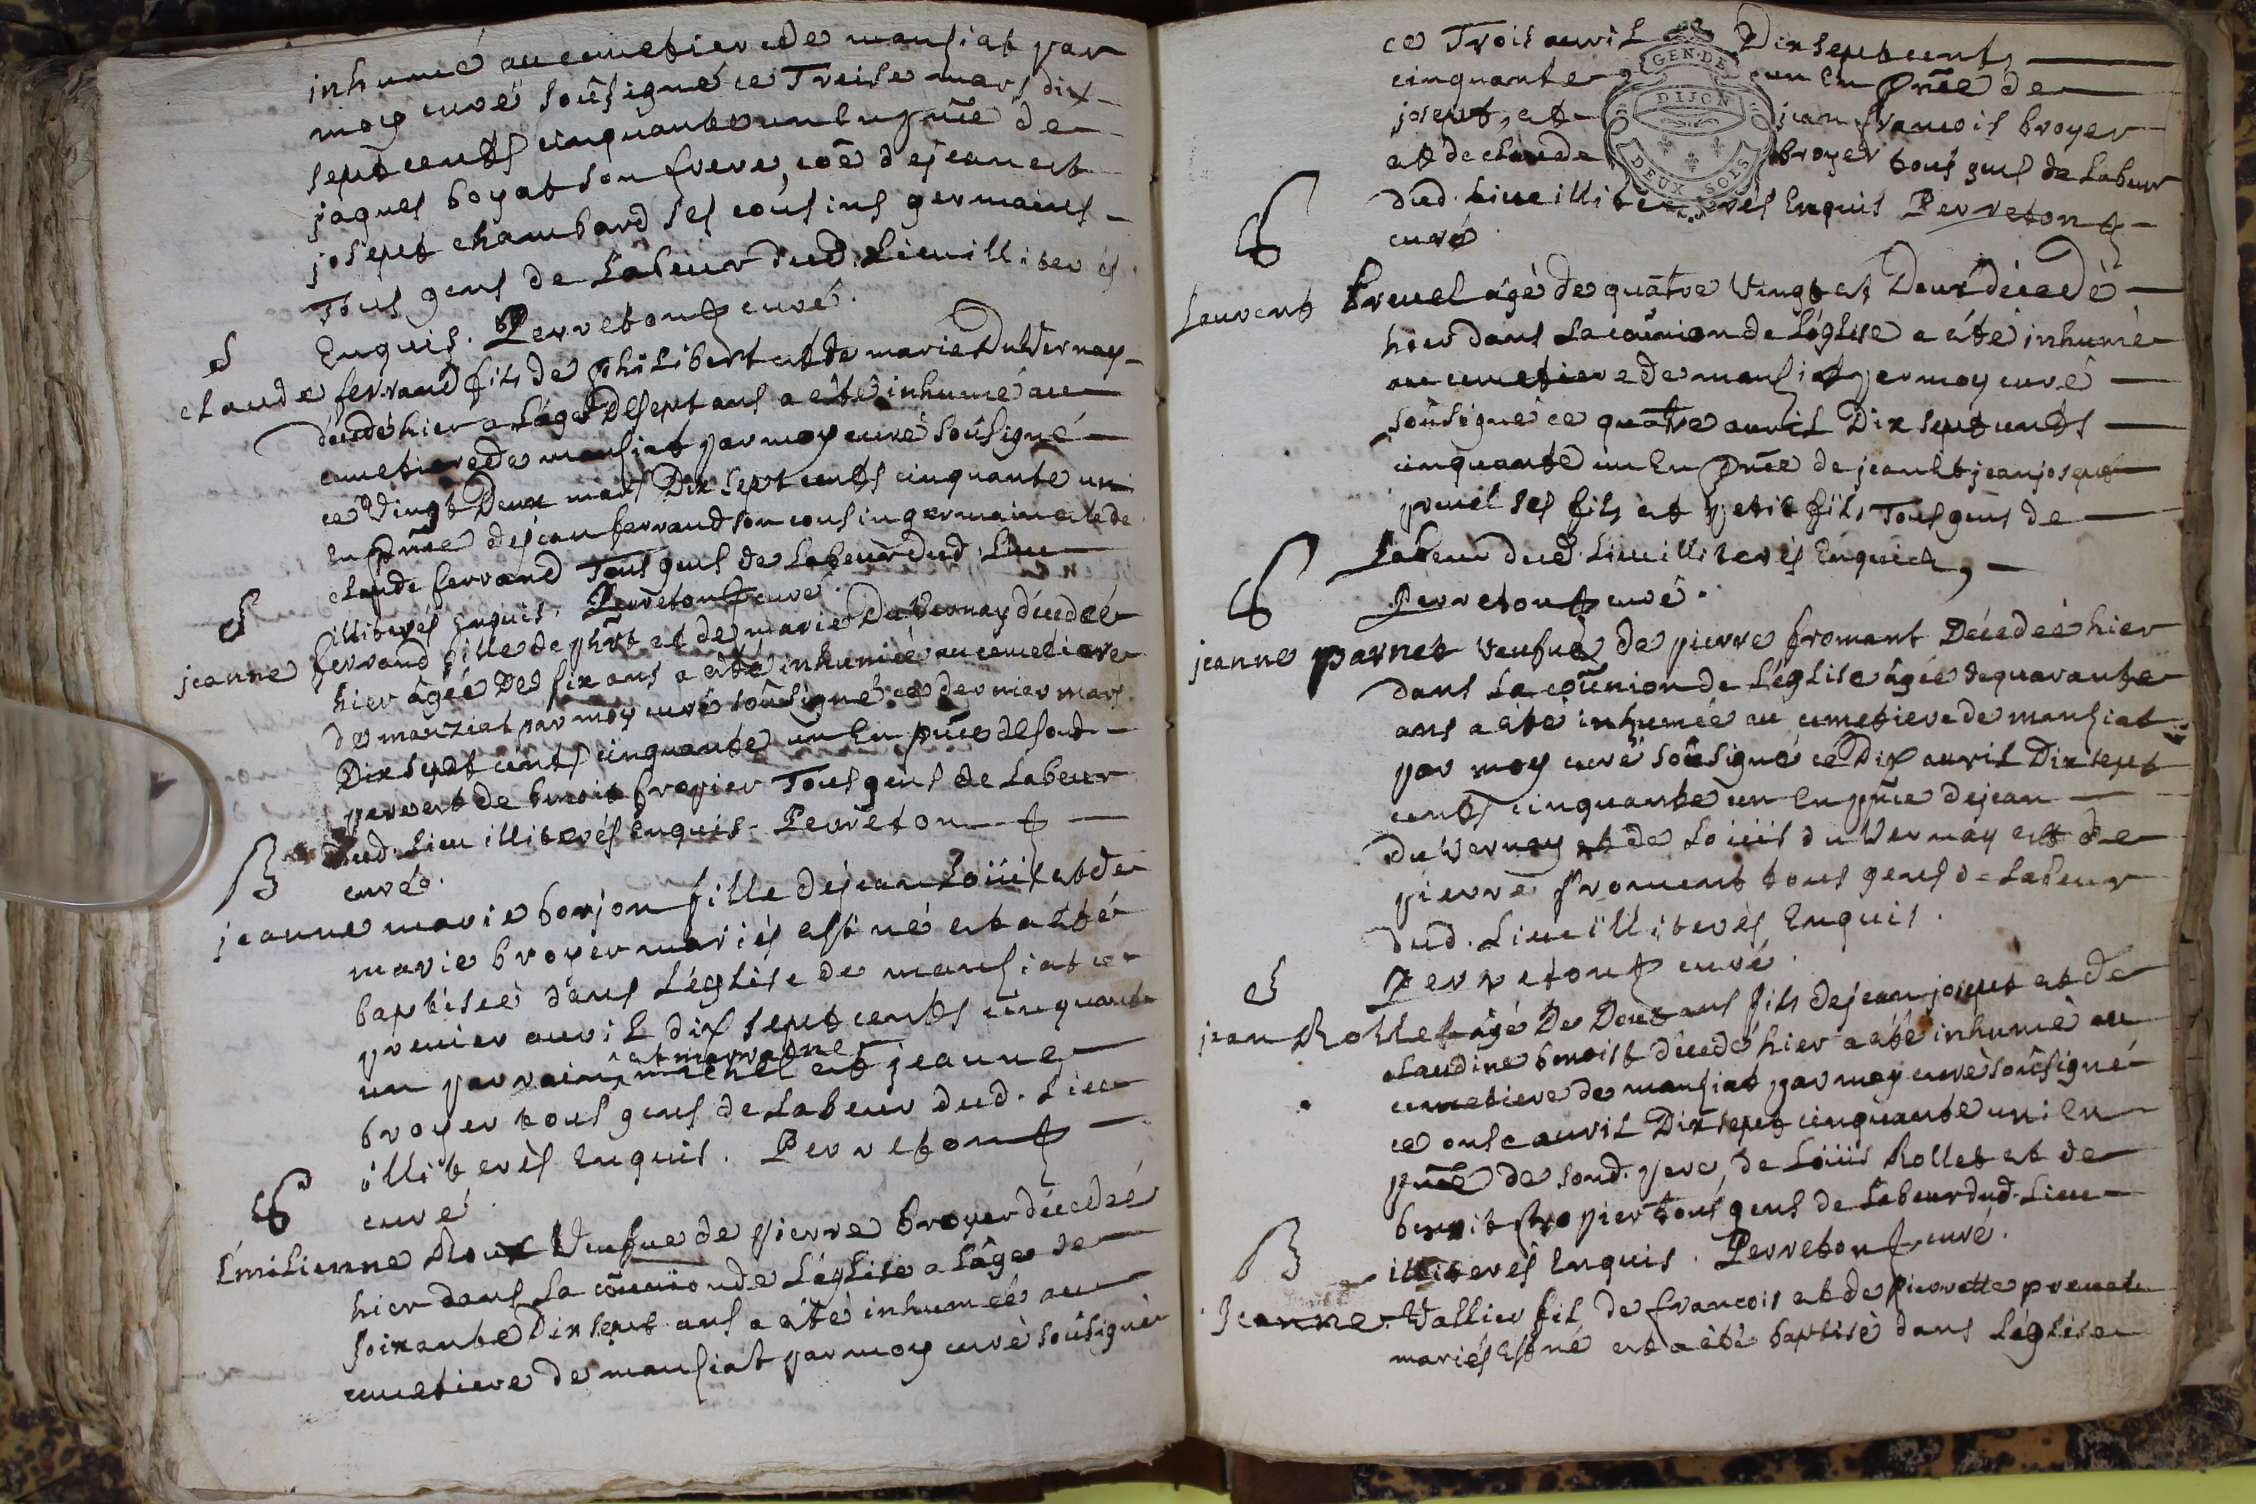 inhumé au cemetiere de mansiat par
moy curé soûsigné ce Treise mars dix
sept cents cinquante un En pñce de
jaques boyat son frere, cõe de jean et
josept chambard ses cousins germains
Tous gens de Labeur dud. Lieu illiterés
Enquis. Perreton curé.
claude ferrand fils de philibert et de marie DuVernay
décedé hier a Lâge De sept ans a été inhumé au
cemetiere de mansiat par moy curé soûsigné
ce Vingt Deux mars Dix sept cents cinquante un
En pñce de jean ferrand son cousin germain et de
claude ferrand Tous gens de Labeur dud. Lieu
illiterés Enquis. Perreton curé.
jeanne ferrand fille de phbrt et de marie DuVernay décedée
hier âgée De six ans a été inhumée au cemetiere
de manziat par moy curé soûsigné ce dernier mars
Dix sept cents cinquante un En pñce de sond.
pere et de benoit fropier Tous gens de Labeur
dud. Lieu illiterés Enquis. Perreton
curé.
B
jeanne marie borjon fille de jean Loüis et de
marie broyer mariés est né et a été
baptisée dans L'église de mansiat ce
premier avril dix sept cents cinquante
et marraine
un parrain michel et jeanne
broyer tous gens de Labeur dud. Lieu
illiterés Enquis. Perreton
curé.
Emilienne Roux Veufue de pierre broyer décedée
hier dans La coũnion de L'église a Lâge de
soixante Dix sept ans a été inhumée au
cemetiere de mansiat par moy curé soûsigné
ce Trois avril Dix sept cents
cinquante un En pñce de
josept, et jean francois broyer
et de claude broyer tous gens de Labeur
dud. Lieu illiterés Enquis Perreton
curé.
GEN. DE
DIJON
DEUX SOLS
Laurent Preuel âgé de quatre Vingt et Deux décedé
hier dans La coũnion de L'église a été inhumé
au cemetiere de mansiat par moy curé
soûsigné ce quatre avril Dix sept cents
cinquante un En pñce de jean et jean josept
preuel ses fils et petit fils Tous gens de
Labeur dud. Lieu illiterés Enquis,
Perreton curé.
jeanne parnet veufue de pierre fromant Décedée hier
dans La coũnion de L'église âgée de quarante
ans a été inhumée au cemetiere de mansiat
par moy curé soûsigné ce Dix avril Dix sept
cents cinquante un En pñce de jean
duVernay et de Loüis duVernay et de
pierre froment tous gens de Labeur
dud. Lieu illiterés Enquis.
Perreton curé.
jean Rollet âgé De Deux ans fils de jean josept et de
claudine benoist décedé hier a été inhumé au
cemetiere de mansiat par moy curé soûsigné
ce onse avril Dix sept cinquante un En
pñce de sond. pere, de Loüis Rollet et de
benoit fropier tous gens de Labeur dud. Lieu
illiterés Enquis. Perreton curé.
B
Jeanne Vallier fil de francois et de pierrette preuel
mariés est né et a été baptisé dans L'église